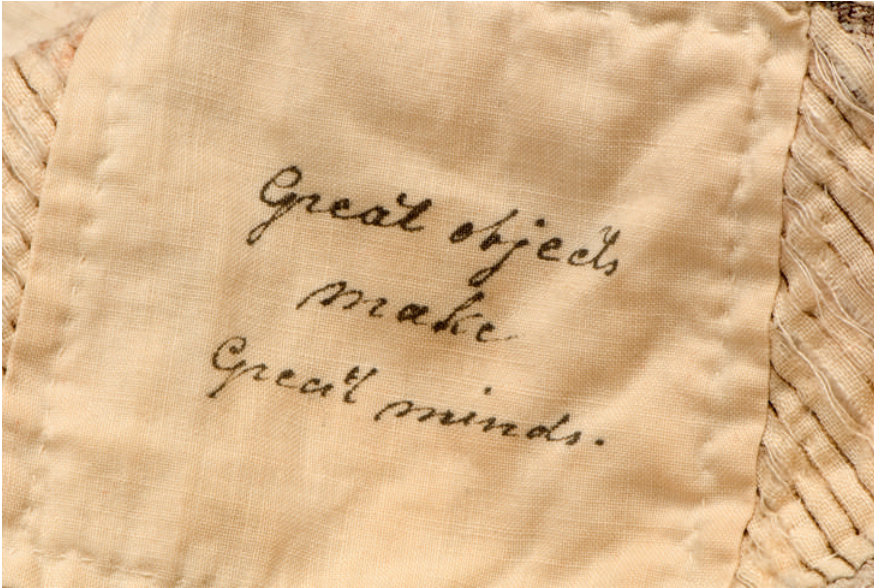 Great objects
make
Great minds.